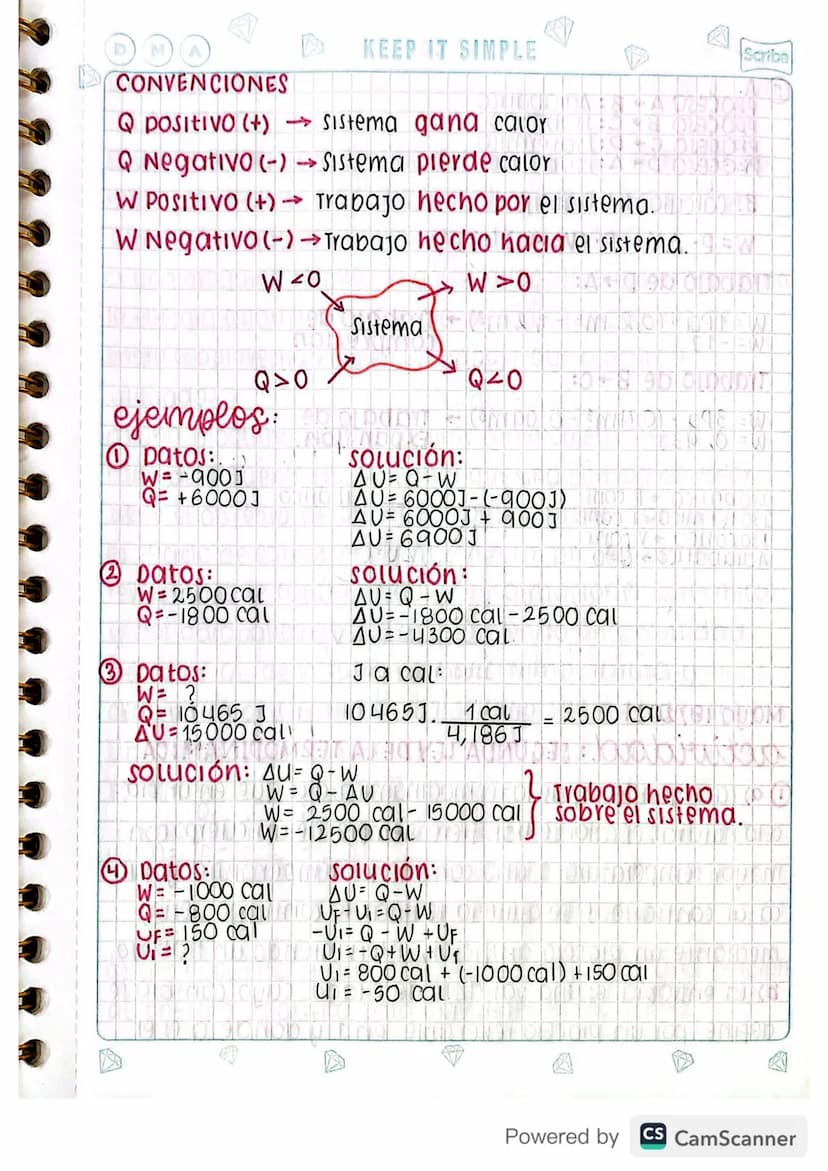 D M A
KEEP IT SIMPLE
Scribe
CONVENCIONES
Q POSITIVO (+) → Sistema gana calor
Q Negativo (-) → Sistema pierde calor
W POSITIVO (+) → Trabajo hecho por el sistema.
W Negativo (-) → Trabajo hecho hacia el sistema.
W <0
W >0
Sistema
Q>0
Q<0
ejemplos:
① Datos:
W= -900J
Q= +6000J
solución:
ΔU= Q-W
ΔU= 6000J-(-900J)
ΔU= 6000J + 900J
ΔU= 6900J
② Datos:
W= 2500 cal
Q=-1800 cal
solución:
ΔU= Q-W
ΔU=-1800 cal -2500 cal
ΔU=-4300 cal
③ Datos:
W= ?
Q= 10465 J
ΔU= 15000 cal
J a cal:
10465J. 1 cal / 4,186J = 2500 cal
solución: ΔU= Q-W
W= Q- ΔU
W= 2500 cal- 15000 cal
W=-12500 cal
Trabajo hecho
sobre el sistema.
④ Datos:
W= -1000 cal
Q= -800 cal
UF= 150 cal
Ui= ?
solución:
ΔU= Q-W
UF-Ui=Q-W
-Ui= Q - W + UF
Ui=-Q+W+Uf
Ui= 800 cal + (-1000 cal) +150 cal
Ui = -50 cal
Powered by CS CamScanner